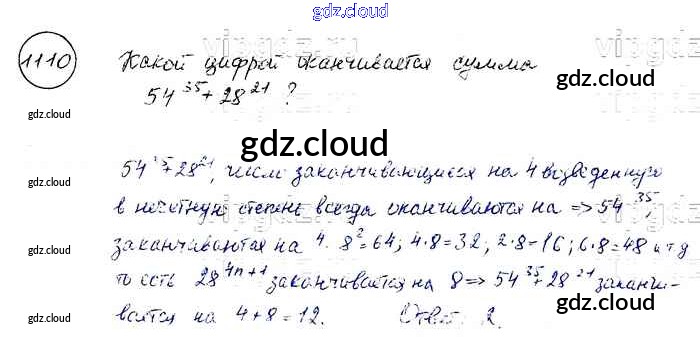 gdz.cloud
1110
Какой цифрой оканчивается сумма
54^35 + 28^21 ?
gdz.cloud
vipgdz
gdz.cloud
gdz.cloud
gdz.cloud
54^35+28^21, числа заканчивающиеся на 4 возведенную
в нечетную степень всегда оканчиваются на => 54^35,
заканчиваются на 4. 8^2=64; 4·8=32; 2·8=16; 6·8=48 и т д
gdz.cloud
gdz.cloud
то есть 28^4n+1 заканчивается на 8 => 54^35+28^21 заканчи-
вается на 4+8=12. Ответ: 2.
gdz.cloud
gdz.cloud